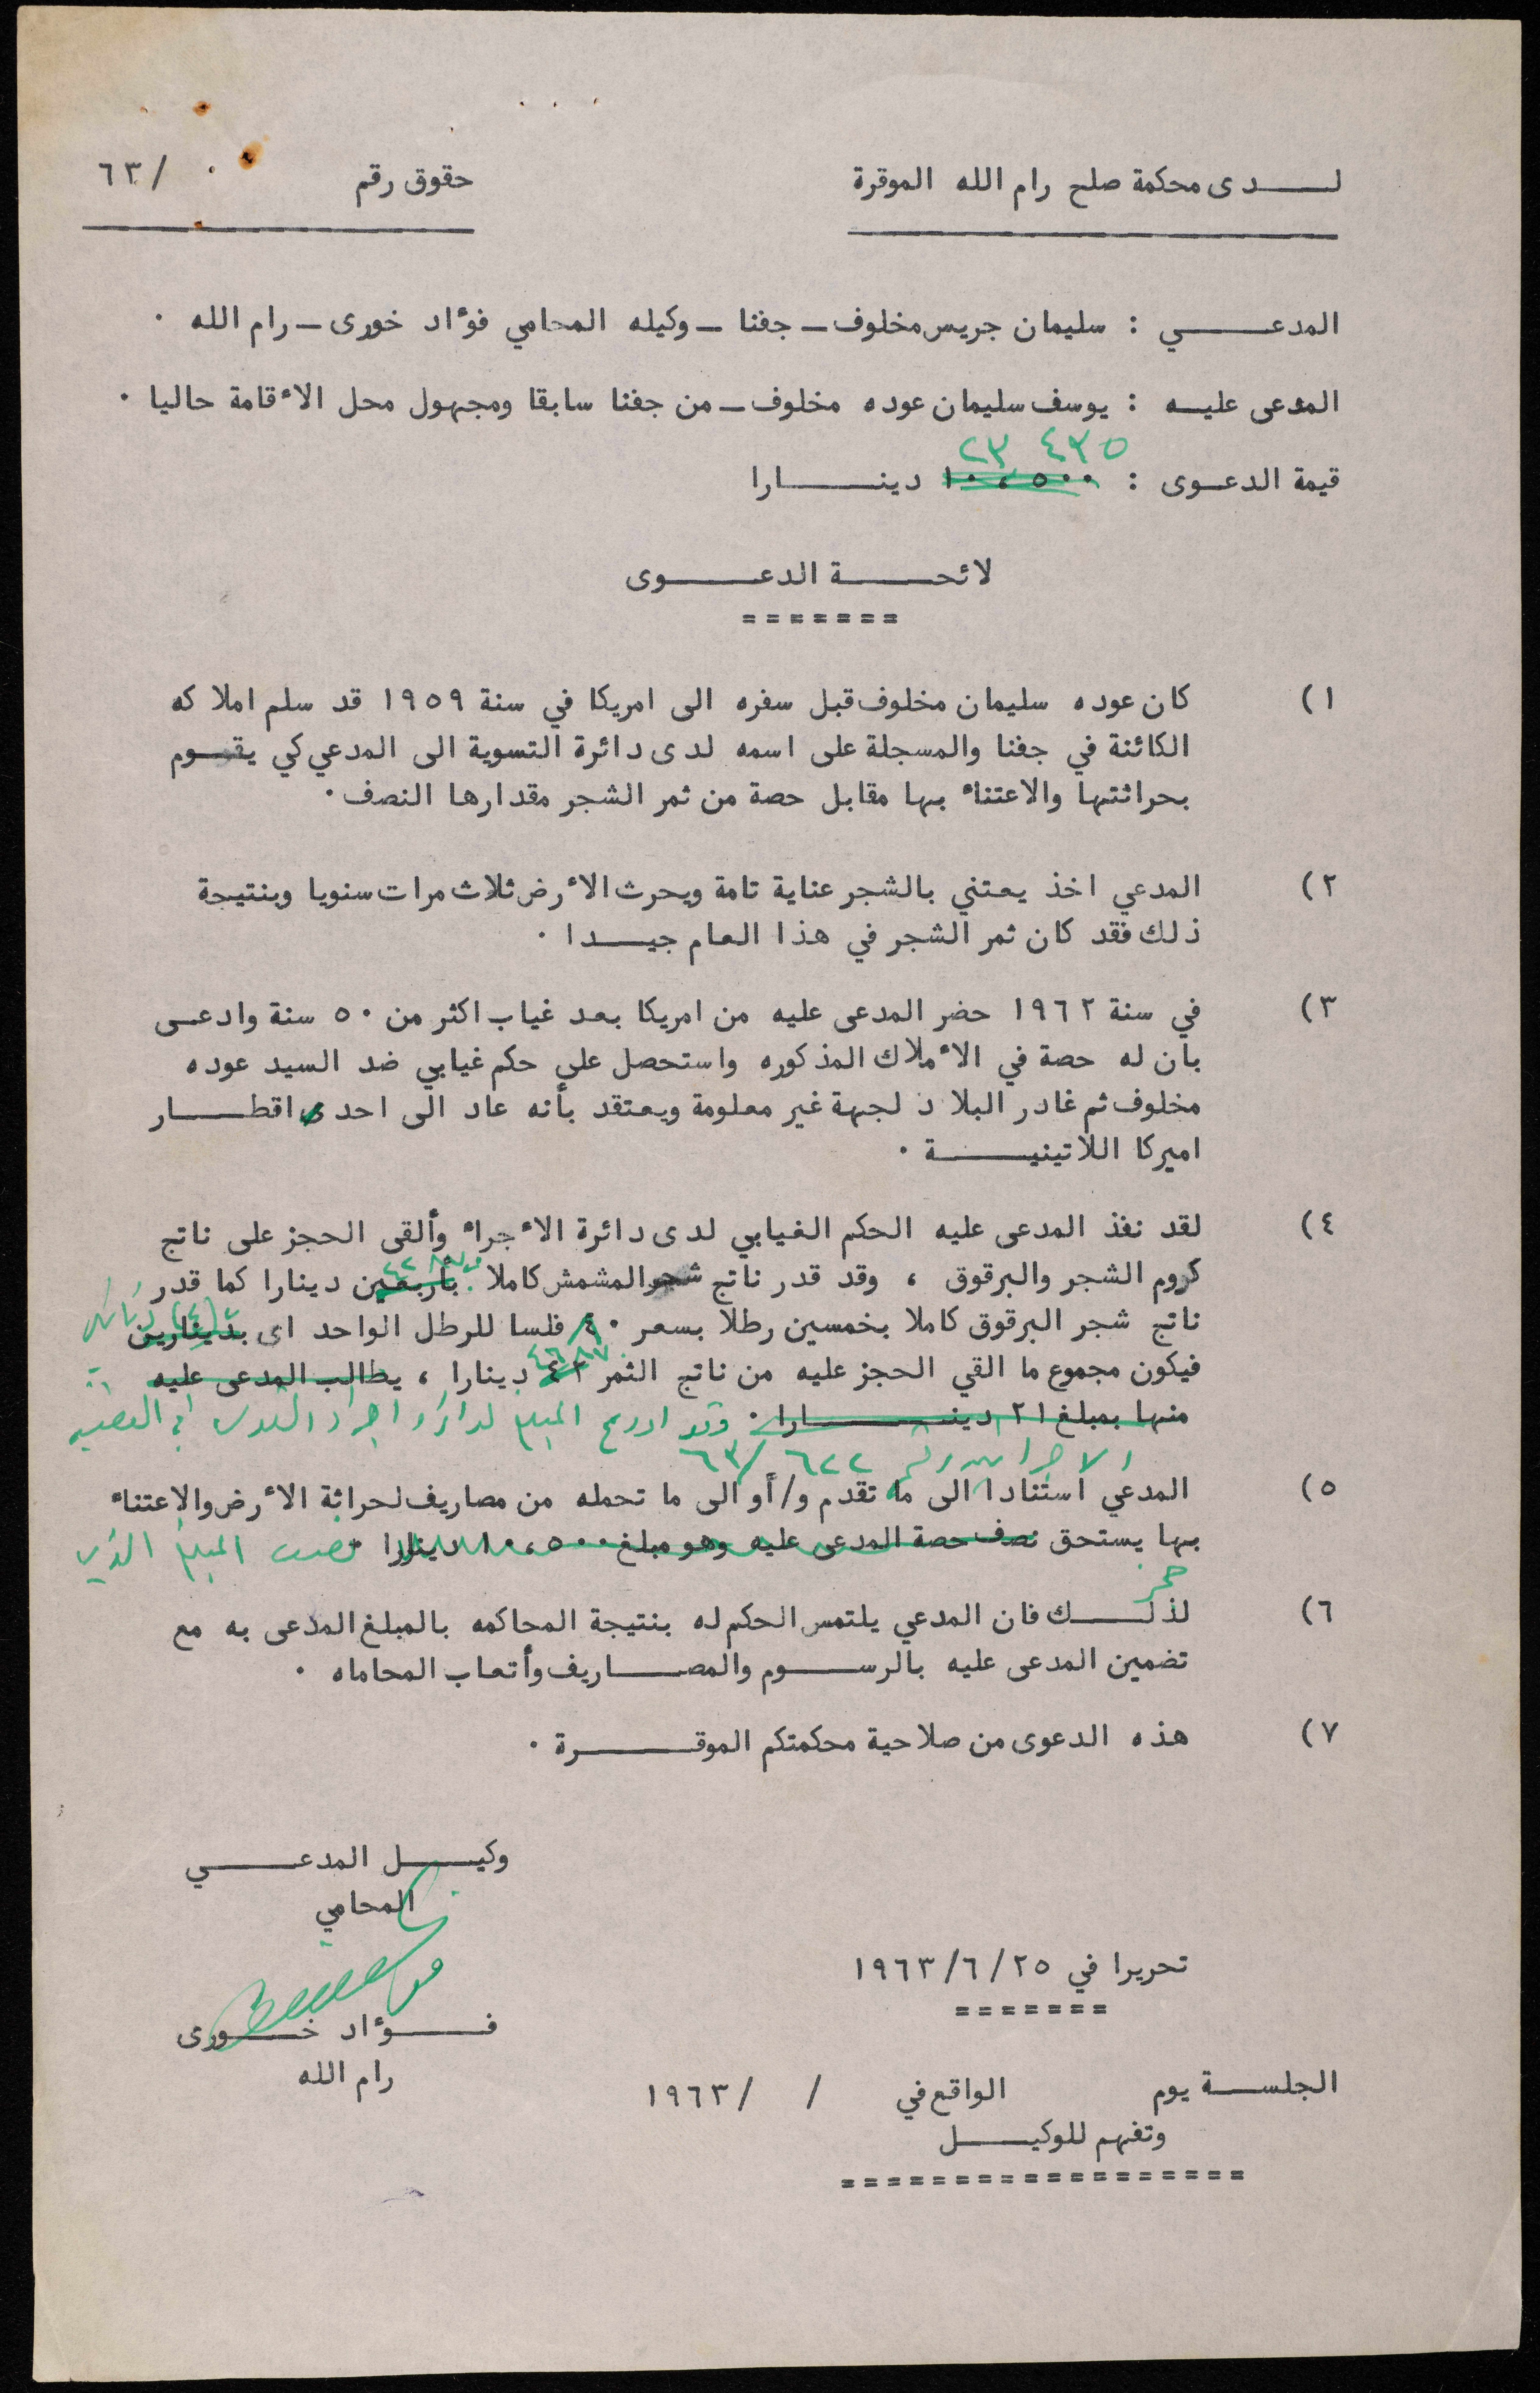 لــدى محكمة صلح رام الله الموقرة
حقوق رقم /٦٣
المدعــي : سليمان جريس مخلوف ــ جفنا ــ وكيله المحامي فوٴاد خورى ــ رام الله ٠
المدعى عليــه : يوسف سليمان عوده مخلوف ــ من جفنا سابقا ومجهول محل الاٴقامة حاليا ٠
٢٣ ٤٣٥
قيمة الدعــوى : ١٠،٥٠٠ دينــارا
لائحــة الدعــوى
=======
١) كان عوده سليمان مخلوف قبل سفره الى امريكا في سنة ١٩٥٩ قد سلم املاكه
الكائنة في جفنا والمسجلة على اسمه لدى دائرة التسوية الى المدعي كي يقــوم
بحراثتها والاعتناٴ بها مقابل حصة من ثمر الشجر مقدارها النصف ٠
٢) المدعي اخذ يعتني بالشجر عناية تامة ويحرث الاٴرض ثلاث مرات سنويا وبنتيجة
ذلك فقد كان ثمر الشجر في هذا العام جيــدا ٠
٣) في سنة ١٩٦٢ حضر المدعى عليه من امريكا بعد غياب اكثر من ٥٠ سنة وادعــى
بان له حصة في الاٴملاك المذكوره واستحصل على حكم غيابي ضد السيد عوده
مخلوف ثم غادر البلاد لجهة غير معلومة ويعتقد بأنه عاد الى احدى اقطــار
اميركا اللاتينيــة ٠
٤) لقد نفذ المدعى عليه الحكم الغيابي لدى دائرة الاٴجراٴ وألقى الحجز على ناتج
كروم الشجر والبرقوق ، وقد قدر ناتج شجر المشمش كاملا بأربعين دينارا كما قدر
ناتج شجر البرقوق كاملا بخمسين رطلا بسعر ٤٠ فلسا للرطل الواحد اى بدينارين (٤) دنانير
٤٦ ٨٧٠
فيكون مجموع ما القي الحجز عليه من ناتج الثمر ٤٢ دينارا ، يطالب المدعى عليه
منها بمبلغ ٢١ دينــارا ٠ وقد اودع المبلغ لدائرة اجراء القدس في القضية
الاجرائية رقم ٦٢٢ /٦٣
٥) المدعي استنادا الى ما تقدم و/أو الى ما تحمله من مصاريف لحراثة الاٴرض والاعتناٴ
بها يستحق نصف حصة المدعى عليه وهو مبلغ ١٠،٥٠٠ دينارا نصف المبلغ الذي
حجز
٦) لذلــك فان المدعي يلتمس الحكم له بنتيجة المحاكمه بالمبلغ المدعى به مع
تضمين المدعى عليه بالرســوم والمصــاريف وأتعاب المحاماه ٠
٧) هذه الدعوى من صلاحية محكمتكم الموقــرة ٠
وكيــل المدعــي
المحامي
فــوٴاد خــورى
رام الله
تحريرا في ٢٥/٦/١٩٦٣
=======
الجلســة يوم الواقع في / /١٩٦٣
وتفهم للوكيــل
=================